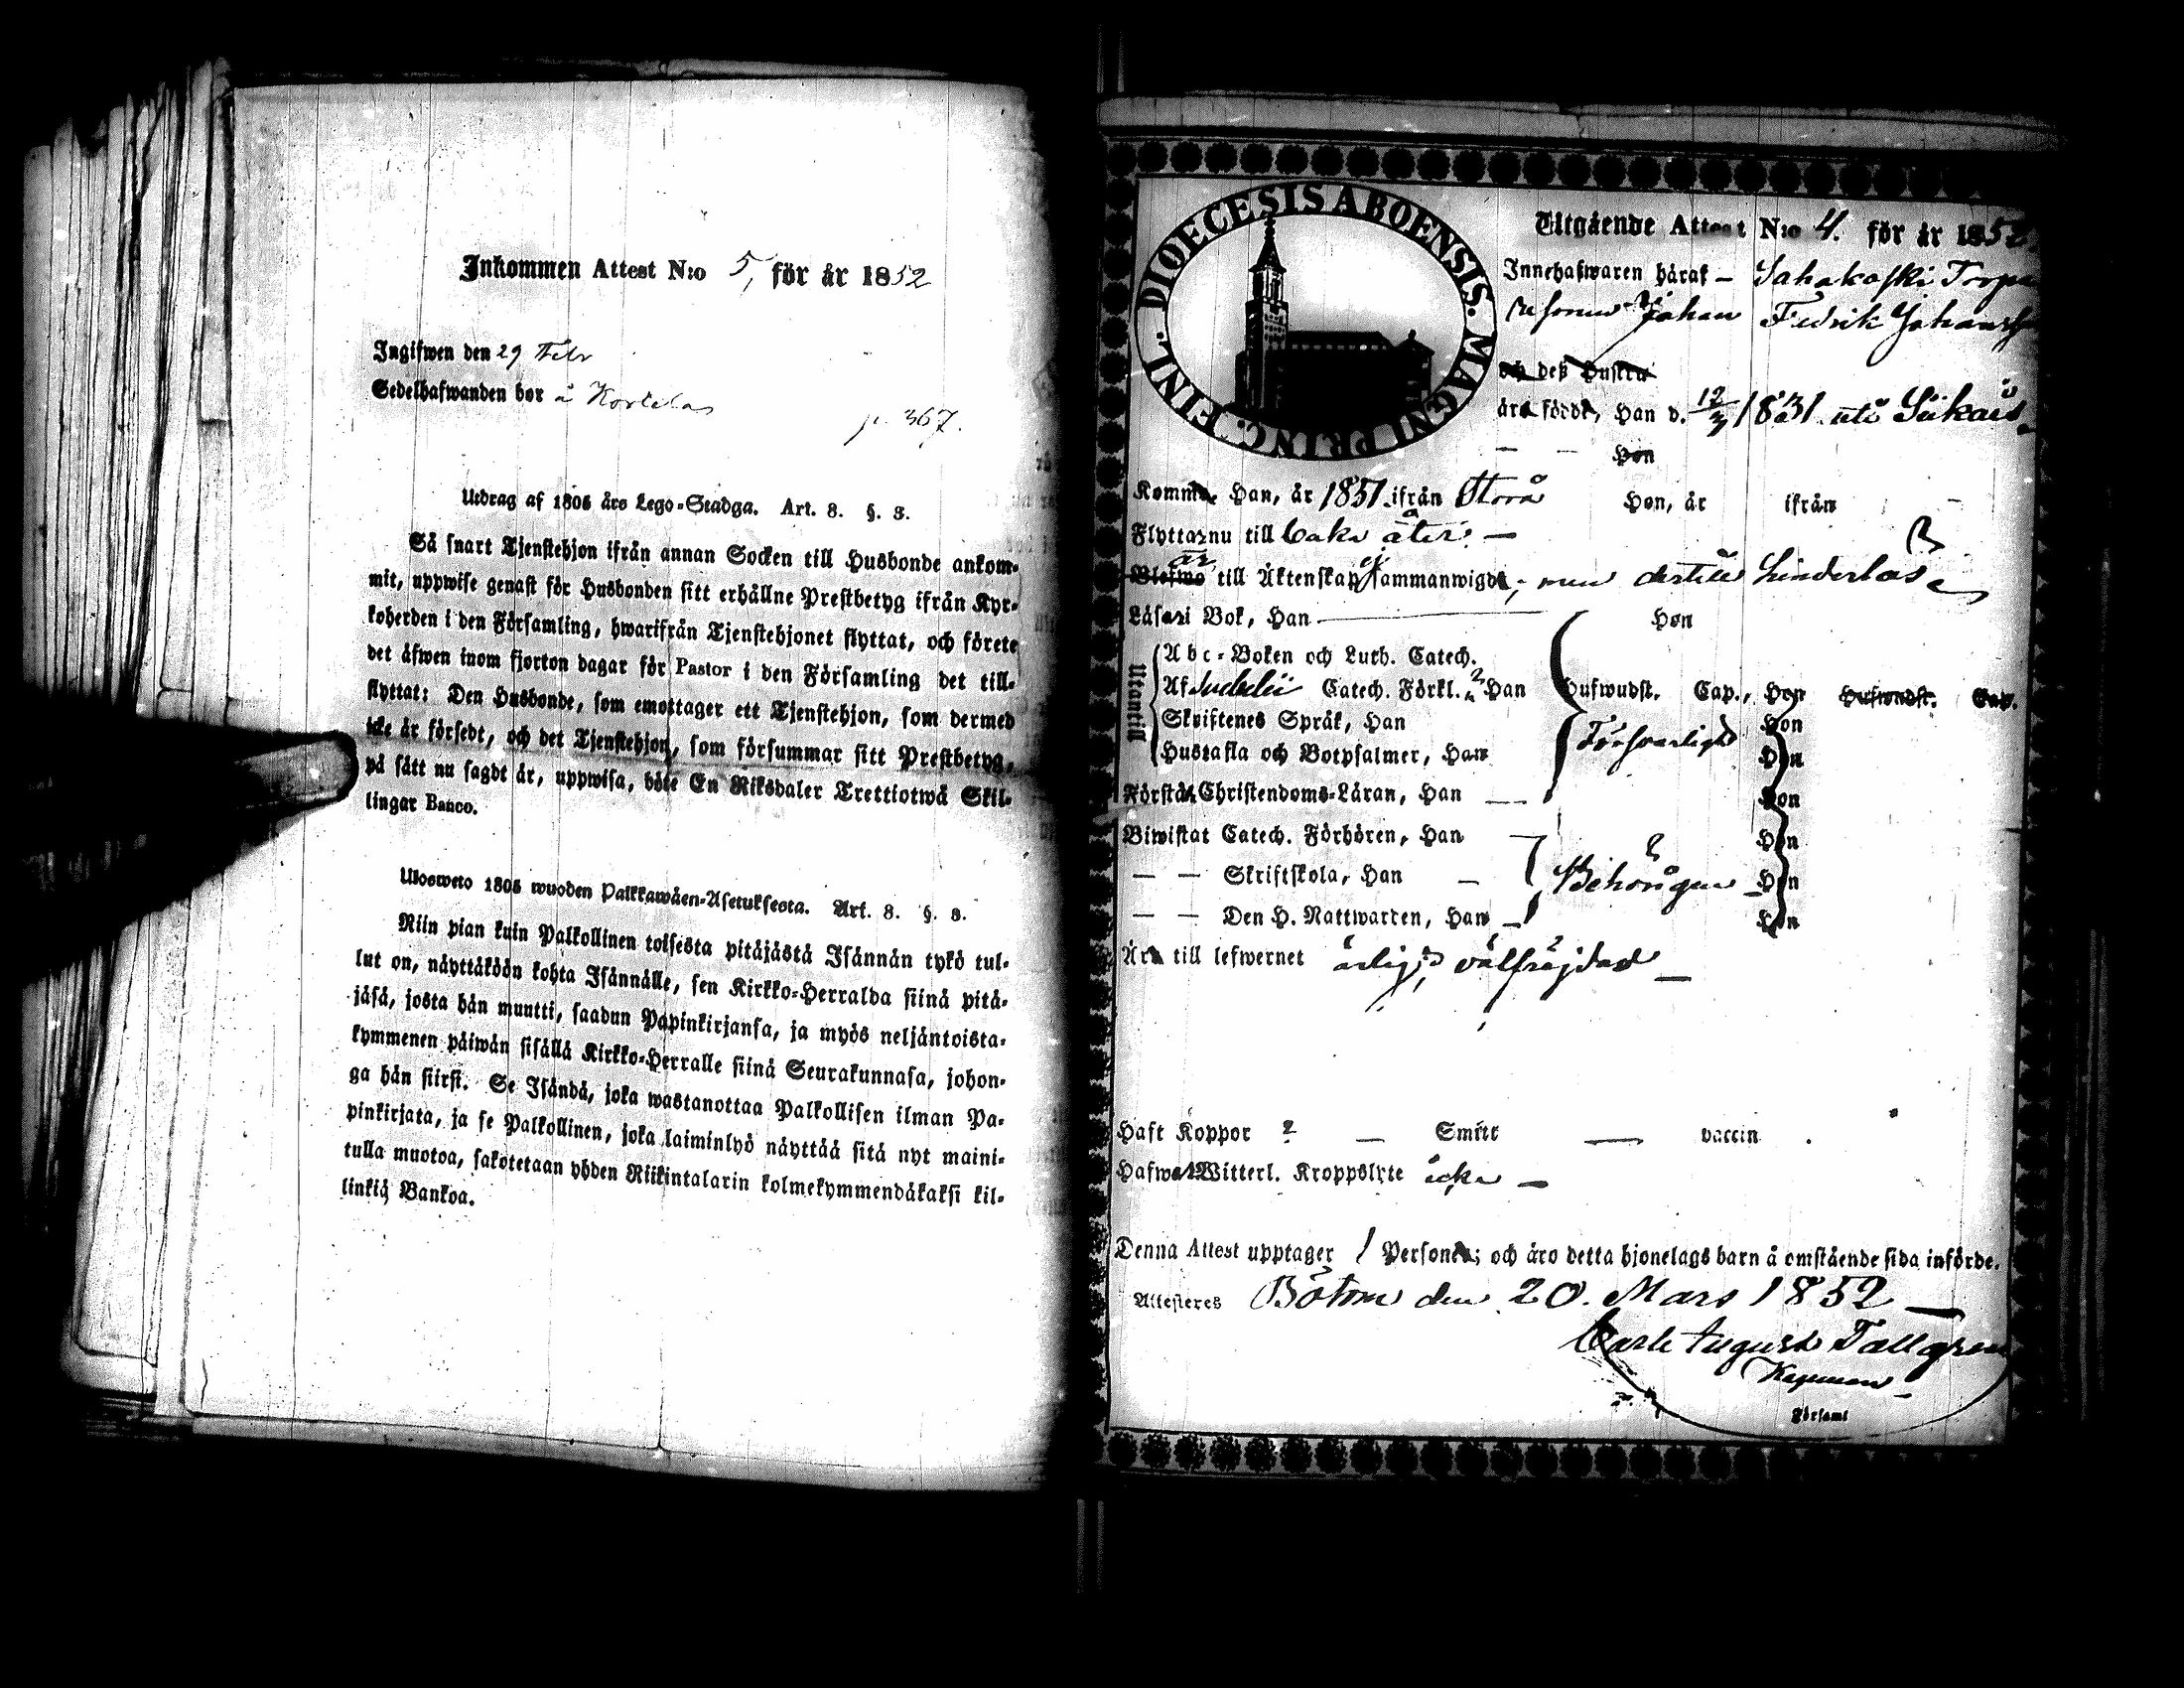 Inkommen Attest N:o 5, för år 1852
Ingifwen den 29 Febr
Sedelhafwanden bor å Kortelas
p. 367.
Utdrag af 1805 års Lego-Stadga. Art. 8. §. 3.
Så snart Tjenstehjon ifrån annan Socken till Husbonde ankom-
mit, uppwise genast för Husbonden sitt erhållne Prestbetyg ifrån Kyr-
koherden i den Församling, hwarifrån Tjenstehjonet flyttat, och förete
det äfwen inom fjorton dagar för Pastor i den Församling det till-
flyttat: Den Husbonde, som emottager ett Tjenstehjon, som dermed
icke är försedt, och det Tjenstehjon, som försummar sitt Prestbetyg,
på sätt nu sagdt är, uppwisa, böte En Riksdaler Trettiotwå Skil-
lingar Banco.
Ulosweto 1805 wuoden Palkkawäen-Asetuksesta. Art. 8. §. 3.
Niin pian kuin Palkollinen toisesta pitäjästä Isännän tykö tul-
lut on, näyttäköön kohta Isännälle, sen Kirkko-Herralda siinä pitä-
jäsä, josta hän muutti, saadun Papinkirjansa, ja myös neljäntoista-
kymmenen päiwän sisällä Kirkko-Herralle siinä Seurakunnasa, johon-
ga hän siirsi. Se Isändä, joka wastanottaa Palkollisen ilman Pa-
pinkirjata, ja se Palkollinen, joka laiminlyö näyttää sitä nyt maini-
tulla muotoa, sakotetaan yhden Riikintalarin kolmekymmendäkaksi kil-
linkiä Bankoa.
DIOECESIS ABOENSIS. MAGNI PRINC. FINL.
Utgående Attest N:o 4. för år 185
Innehafwaren häraf – Sahakoski Torpa
sonen Johan Fedrik Johansso
och deß Hustru
äro födde, Han d. 12/3 1831 uti Siikais
— — Hon
Komme, Han, år 1851 ifrån Storå Hon, år ifrån —
Flyttar nu till baka åter. —
är ej
Blefwo till Äktenskap sammanwigde, men dertill hinderlös
Läser i Bok, Han — Hon
Utantill
Abc-Boken och Luth. Catech.
Af Svebelii Catech. Förkl. Han Hufwudst. Cap., Hon Hufwudst. Cap.
Skriftenes Språk, Han Försvarligt Hon
Hustafla och Botpsalmer, Han Hon
Förstår Christendoms-Läran, Han — Hon
Biwistat Catech. Förhören, Han — Hon
— — Skriftskola, Han — Behörigen Hon
— — Den H. Nattwarden, Han — Hon
Är till lefwernet ärlig, välfräjdad —
Haft Koppor ? — Smitt — vaccin.
Hafwer Witterl. Kroppslyte icke —
Denna Attest upptager 1 Person; och äro detta hjonelags barn å omstående sida införde.
Attesteras Bötom den 20. Mars 1852 —
Carl August Tallgren
Kapellan
Församl